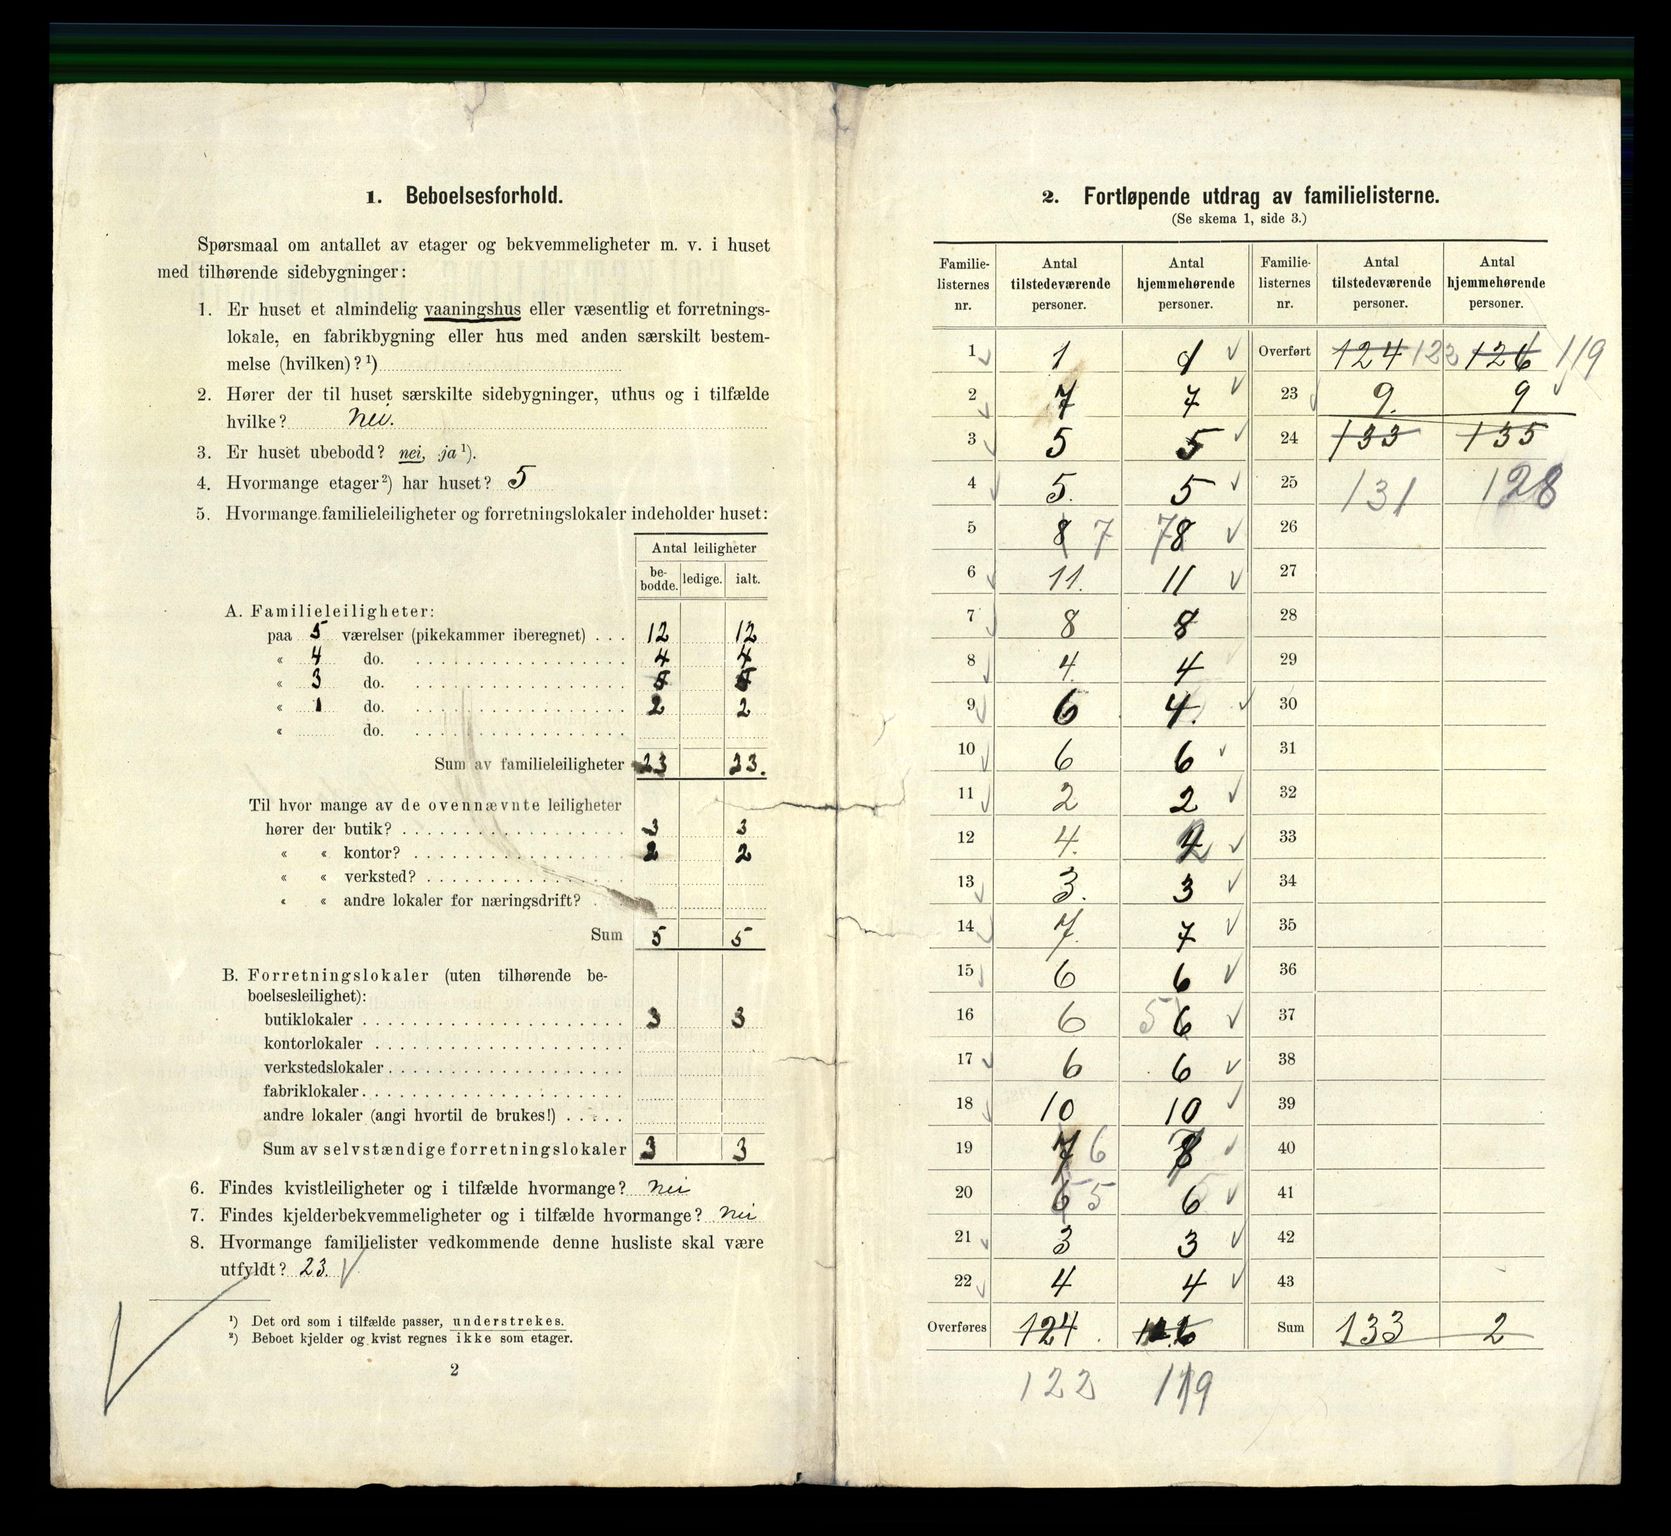 1. Beboelsesforhold.
Spørsmaal om antallet av etager og bekvemmeligheter m. v. i huset
med tilhørende sidebygninger:
1. Er huset et almindelig vaaningshus eller væsentlig et forretnings-
lokale, en fabrikbygning eller hus med anden særskilt bestem-
melse (hvilken)? ¹)
2. Hører der til huset særskilte sidebygninger, uthus og i tilfælde
hvilke? Nei.
3. Er huset ubebodd? nei, ja ¹).
4. Hvormange etager ²) har huset? 5
5. Hvormange familieleiligheter og forretningslokaler indeholder huset:
Antal leiligheter
be-bodde. ledige. ialt.
A. Familieleiligheter:
paa 5 værelser (pikekammer iberegnet) . . . 12 12
« 4 do. 4 4
« 3 do.
« 1 do. 2 2
« do.
Sum av familieleiligheter 23 23.
Til hvor mange av de ovennævnte leiligheter
hører der butik? 3 3
« « kontor? 2 2
« « verksted?
« « andre lokaler for næringsdrift?
Sum 5 5
B. Forretningslokaler (uten tilhørende be-
boelsesleilighet):
butiklokaler 3 3
kontorlokaler
verkstedslokaler
fabriklokaler
andre lokaler (angi hvortil de brukes!)
Sum av selvstændige forretningslokaler 3 3
6. Findes kvistleiligheter og i tilfælde hvormange? Nei
7. Findes kjelderbekvemmeligheter og i tilfælde hvormange? Nei
8. Hvormange familielister vedkommende denne husliste skal være
utfyldt? 23.
¹) Det ord som i tilfælde passer, understrekes.
²) Beboet kjelder og kvist regnes ikke som etager.
2
2. Fortløpende utdrag av familielisterne.
(Se skema 1, side 3.)
Familie-listernes nr. Antal tilstedeværende personer. Antal hjemmehørende personer. Familie-listernes nr. Antal tilstedeværende personer. Antal hjemmehørende personer.
1 1 Overført 124 122 126 119
2 7 7 23 9. 9
3 5 5 24 133 135
4 5. 5 25 131 128
5 8 7 7 8 26
6 11. 11 27
7 8 8 28
8 4 4 29
9 6 4. 30
10 6 6 31
11 2 2 32
12 4. 33
13 3. 3 34
14 7. 7 35
15 6 6 36
16 6 5 6 37
17 6 6 38
18 10 10 39
19 7 6 8 40
20 6 5 6 41
21 3 3 42
22 4 4 43
Overføres 124 Sum 133 2
122 119